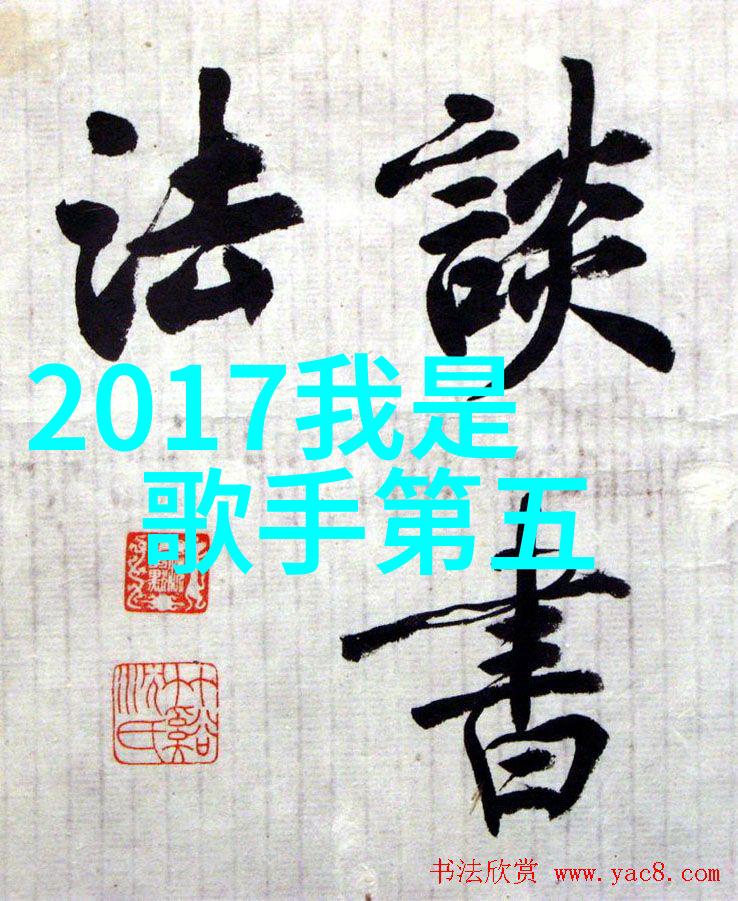 談書
法
2017我是
歌手第五
书法欣赏 www.yac8.com